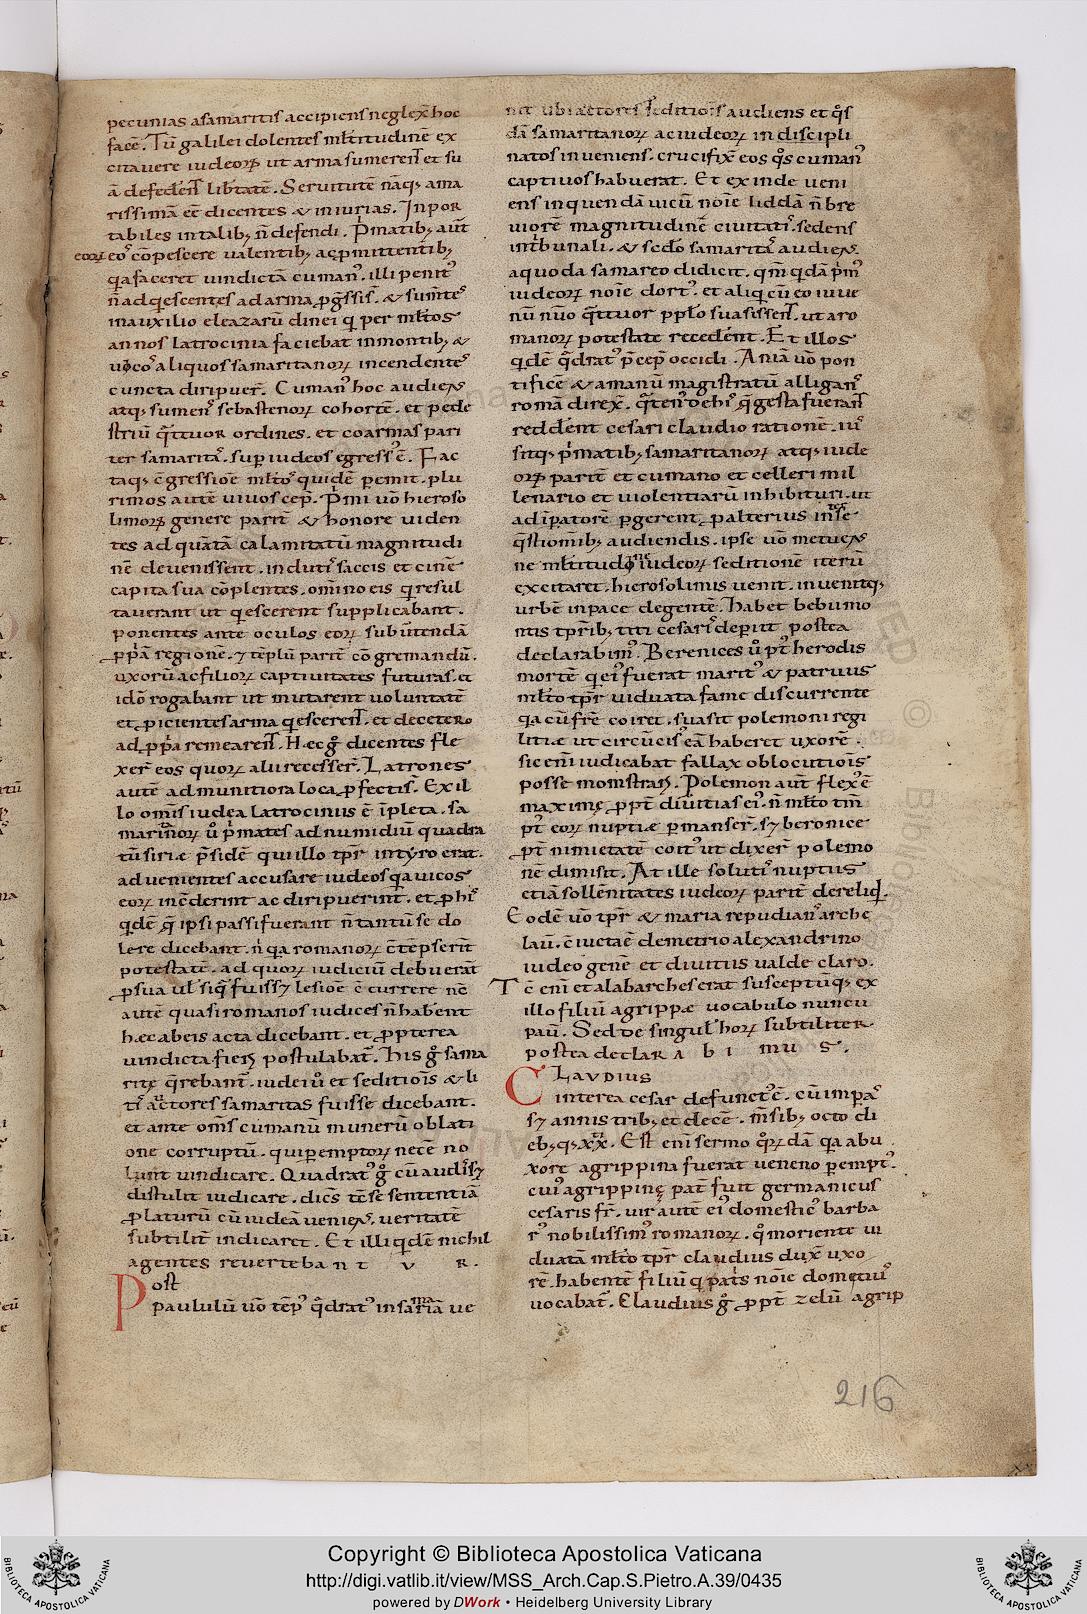 pecunias a samaritis accipiens neglex̄ hoc
facē. Tū galilei dolentes ml̄titudinē ex
citavere iudeoꝝ ut arma sumerent et su
ā defēderent lib̄tatē. Servitutē nāq; ama
rissimā eē dicentes & iniurias. Inpor
tabiles in talib; n̄ defendi. P̄matib; aut̄
eorum
eoꝰ cōpescere valentib; ac ꝓmittentib;
qa faceret vindictā cumanꝰ. illi penitꝰ
n̄ adq̇escentes ad arma ꝓgressi s̄. & sum̄tes
in auxilio eleazarū dinei qi per ml̄tos
annos latrocinia faciebat in montib; &
vicos aliquos samaritanoꝝ incendentes
cuncta diripuer̄. Cumanꝰ hoc audiens
atq; sumens sebastenoꝝ cohortē. et pede
striū q̄ttuor ordines. et coarmas pari
ter samaritas. sup iudeos egressꝰ ē. Fac
taq; cgressioē ml̄tos quidē pemit. plu
rimos autē vivos cep̄. P̄mi vō hieroso
limoꝝ genere parit̄ & honore viden
tes ad quātā calamitatū magnitudi
nē devenissent. induti saccis et cinē
capita sua cōplentes. om̄ino eis qi resul
taverant ut qiescerent supplicabant.
ponentes ante oculos eoꝝ subv̄tendā
ꝓpīā regionē. ⁊ tēplū parit̄ cōgremandū.
uxorū ac filioꝝ captivitates futuras. et
idō rogabant ut mutarent voluntatē
et ꝓicientes arma qiescerent. et de cetero
ad ꝓp̄a remearent. Hæc gͦ dicentes fle
xer̄ eos quoꝝ alii recesser̄. Latrones
autē ad munitiora loca ꝓfecti s̄. Ex il
lo om̄is iudea latrociniis ē īpleta. Sa
maritanoꝝ vͦ p̄mates ad numidiū quadra
tū siriæ p̄sidē qui illo tp̄r in tyro erat.
advenientes accusare iudeos qa vicos
eoꝝ incēderint ac diripuerint. et ꝓ his
qdē q̄ ipsi passi fuerant n̄ tantū se do
lere dicebant. n̄ qa romanoꝝ cōtēpserīt
potestatē. ad quoꝝ iudiciū debuerāt
ꝓ sua ul̄ siq̄ fuisset lesioē ccurrere nē
autē quasi romanos iudices n̄ habent
hæc ab eis acta dicebant. et ꝓpterea
vindicta fieri postulabat. His gͦ sama
ritę q̄rebant̄. iudei vͦ et seditiōis & li
tis auctores samaritas fuisse dicebant.
et ante om̄s cumanū munerū oblati
one corruptū. qui peremptoꝝ necē no
lunt vindicare. Quadratꝰ gͦ cū audisset
distulit iudicare. dicēs tē se sententiā
ꝓlaturū cū iudeā veniens. veritatē
subtilit̄ indicaret. Et illi qdē nichil
agentes revertebantur.
Post
paululū vō tēpꝰ q̄dratꝰ in samariā ve
nit ubi actores seditiōis audiens et qͦs
dā samaritanoꝝ ac iudeoꝝ indiscipli
natos inveniens. crucifix̄ eos qͦs cumanꝰ
captivos habuerat. Et exinde veni
ens in quendā vicū noīe liddā n̄ bre
viorē magnitudinē civitatis. sedens
in tribunali. & scdō samaritas audiens.
a quodā samareo didicit. qm̄ qdā p̄mꝰ
iudeoꝝ noīe dortꝰ. et alii qi cū eo iuve
nū nūo q̄ttuor ppl̄o suasissent. ut a ro
manoꝝ potestate recederent. Et illos
qdē q̄dratꝰ p̄cep̄ occidi. Aniā vō pon
tificē & amanū magistratū alligans
romā direx̄. q̄tenꝰ de his q̄ gesta fuerant
reddent cesari claudio rationē. ius
sitq; p̄matib; samaritanoꝝ atq; iude
oꝝ parit̄ et cumano et celleri mil
lenario et violentiarū inhibituri. ut
ad īpatorē pgerent. ꝑ alterius inter se
q̄stionib; audiendis. ipse vō metuens
ne ml̄titudo iudeoꝝ seditionē iterū
excitaret. hierosolimis venit. invenitq;
urbē in pace degentē. Habet bebiumo
ntis tp̄rib; titi cesaris depiit postea
declarabimꝰ. Berenices vͦ pꝰt herodis
mortē qi eiꝰ fuerat maritꝰ & patruus
ml̄to tp̄r viduata fame discurrente
qa cū fr̄e coiret. suasit polemoni regi
litiæ ut circūcisꝰ eā haberet uxorē.
sic enī iudicabat fallax oblocutiōis
posse monstrari. Polemon aut̄ flexꝰ ē
maximę ꝓpt̄ divitias eiꝰ. n̄ ml̄to tm̄
pꝰt eoꝝ nuptiæ pmanser̄. sꝫ beronice
ꝓpt̄ nimietatē coitꝰ ut dixer̄ polemo
nē dimisit. At ille solutis nuptiis
etiā sollēnitates iudeoꝝ parit̄ dereliqͥ.
Eodē vō tp̄r & maria repudians arche
lau. ciuctaē demetrio alexandrino
iudeo genē et divitiis valde claro.
Tc̄ enī et alabarches erat susceptūq; ex
illo filiū agrippæ vocabulo nuncu
pau. Sed de singulis horꝝ subtiliter
postea declarabimus.
CLAUDIUS
interea cesar defunctꝰ ē. cū imp̄as
sꝫ annis trib; et decē. m̄sib; octo di
eb;q; xx. Est enī sermo qͦrꝝdā qa ab u
xore agrippina fuerat veneno pemptꝰ.
cuiꝰ agrippinę pat̄ fuit germanicus
cesaris fr̄. vir autē eiꝰ domesticꝰ barba
rꝰ nobilissimꝰ romanoꝝ. qͦ moriente vi
duatā ml̄to tp̄r claudius dux̄ uxo
rē. habentē filiū qi patris noīe dometiꝰ
vocabat̄. Claudius gͦ ꝓpt̄ zelū agrip
216
Copyright © Biblioteca Apostolica Vaticana
http://digi.vatlib.it/view/MSS_Arch.Cap.S.Pietro.A.39/0435
powered by DWork • Heidelberg University Library
BIBLIOTECA APOSTOLICA VATICANA
BIBLIOTECA APOSTOLICA VATICANA